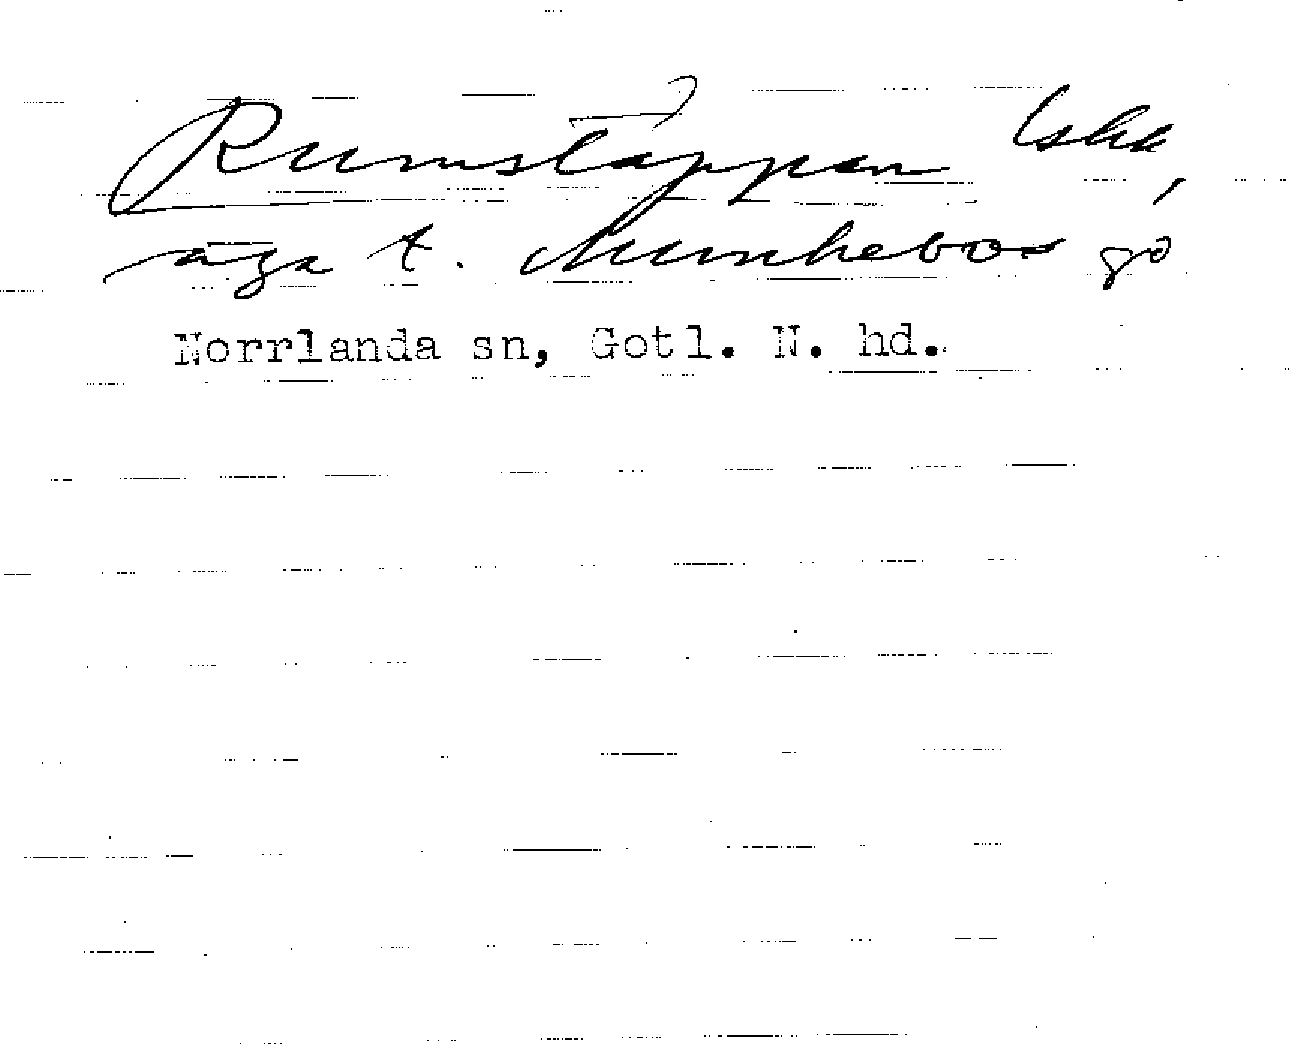 Rumstäppen
äga t. Munkebos gd
Norrlanda sn, Gotl. N. hd.